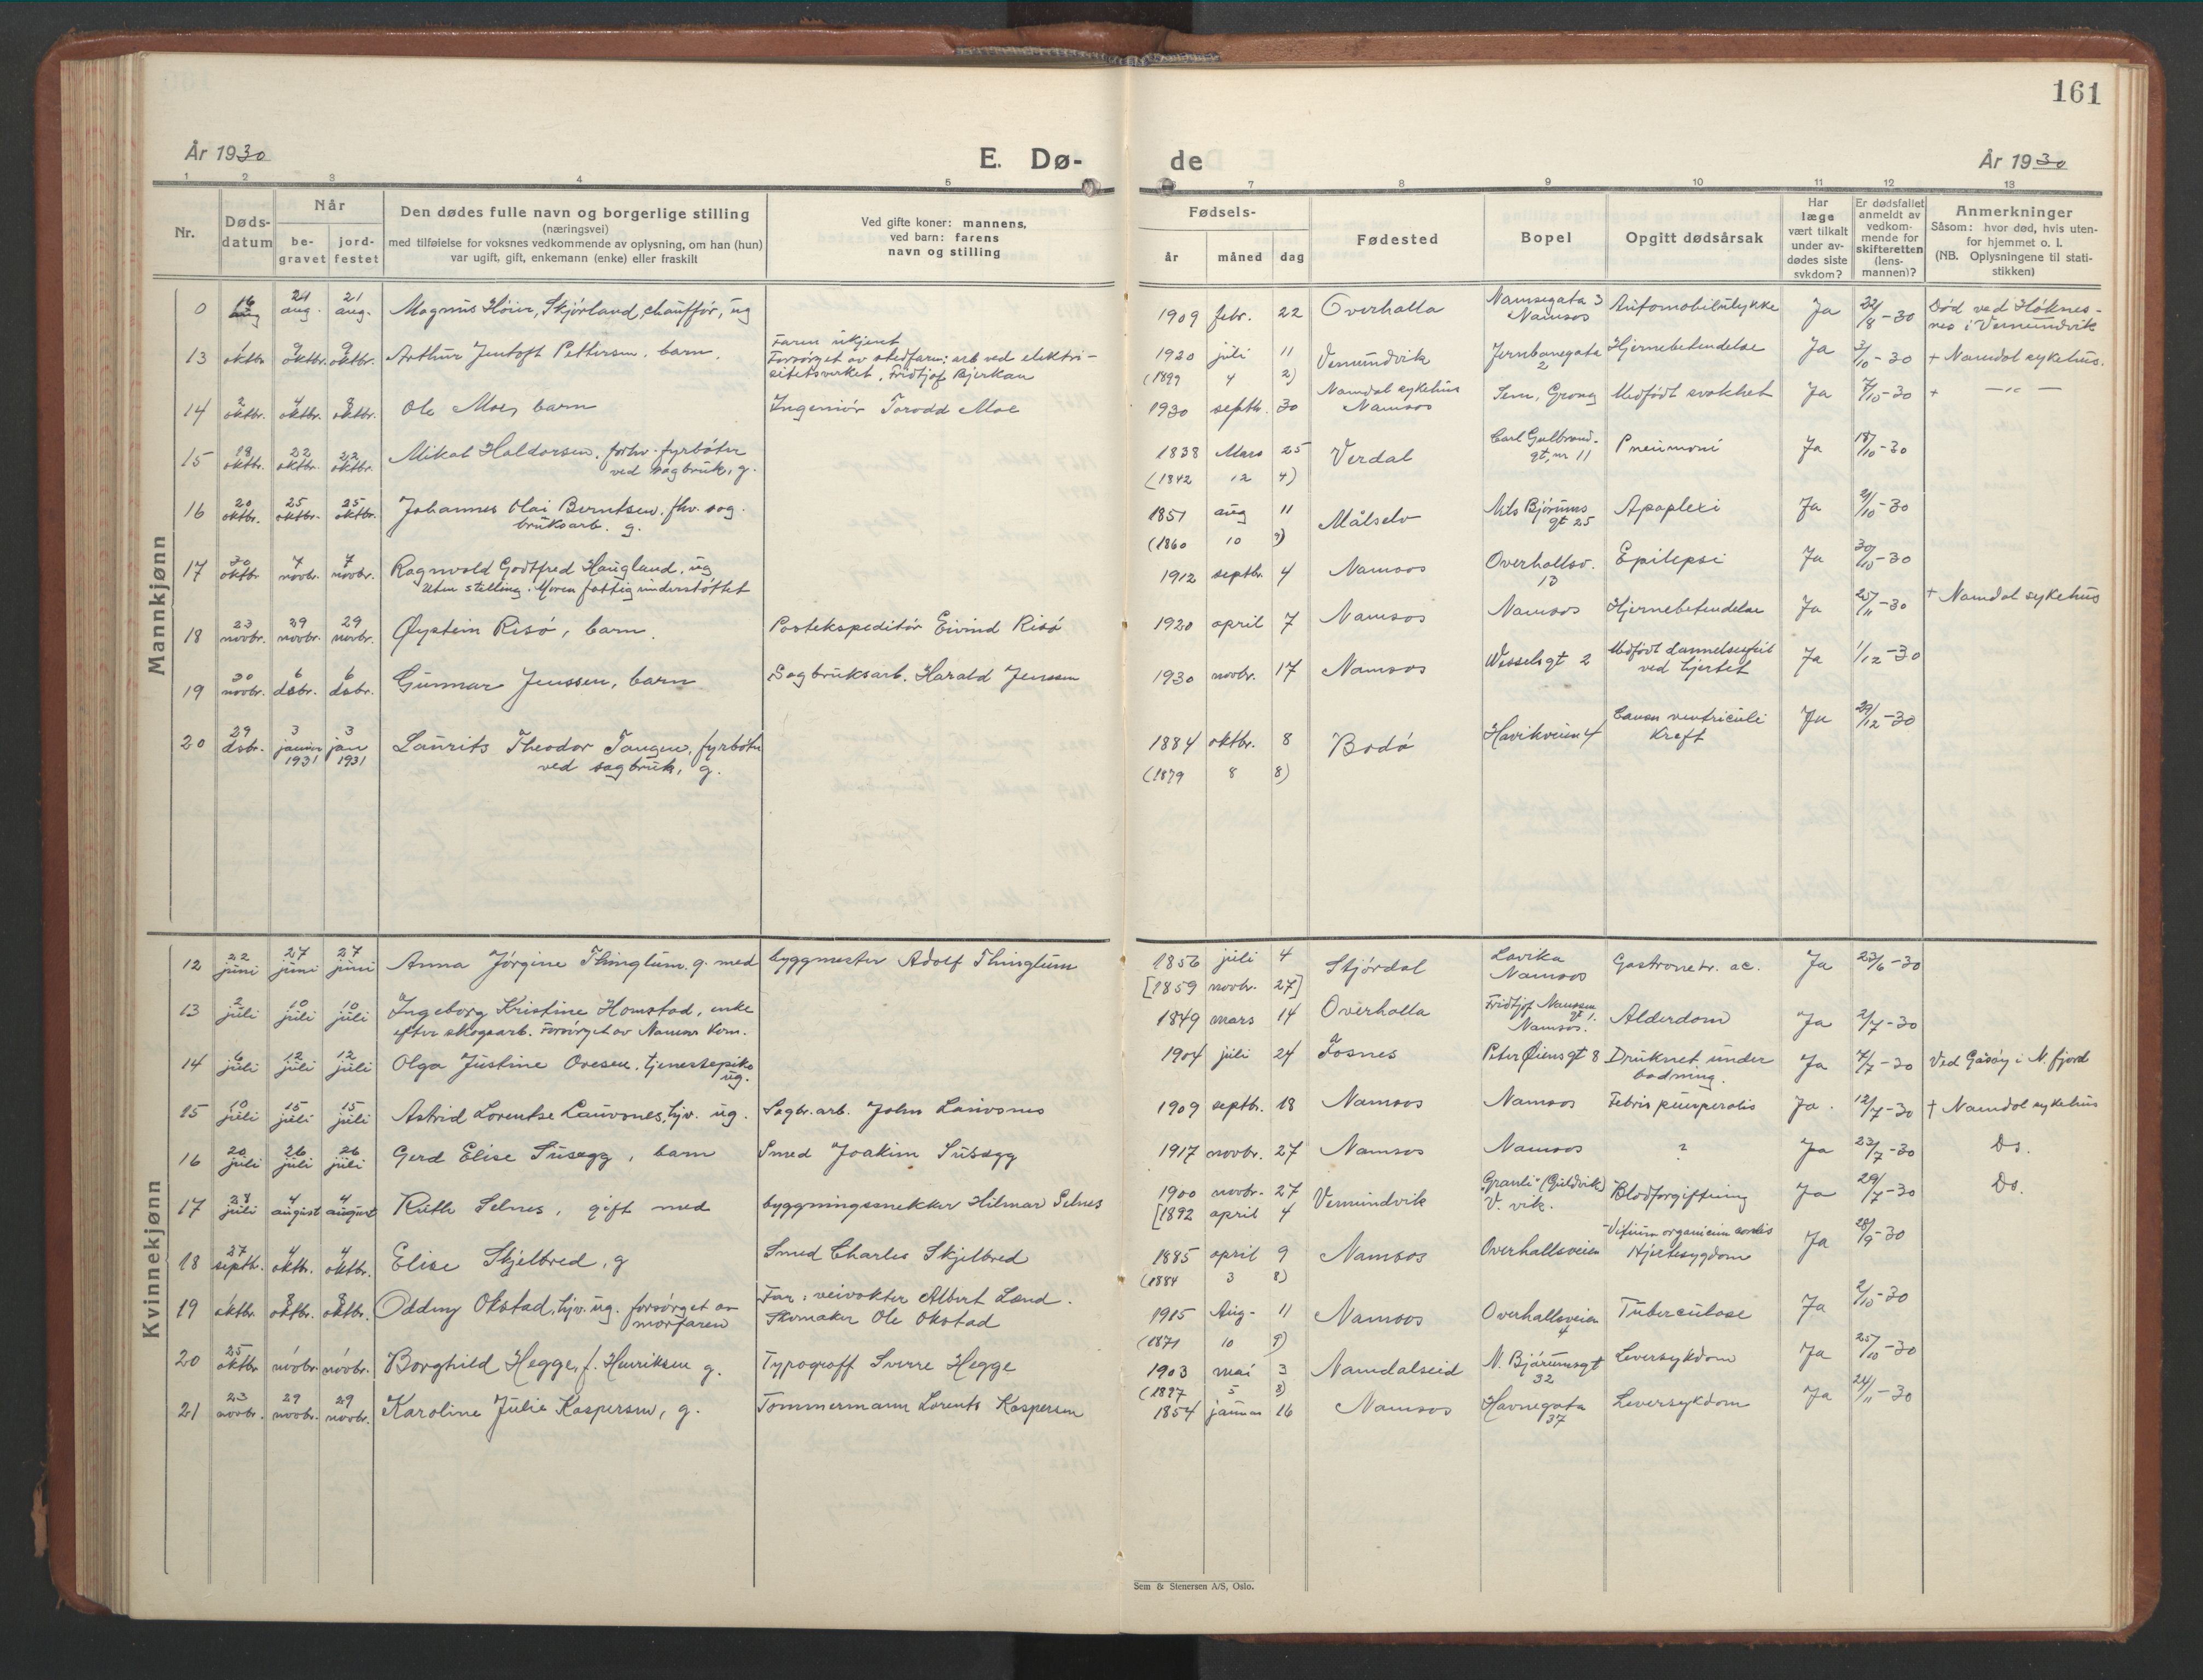 161
År 1930
E. Dø-
de
År 1930
1 2 3 4 5 7 8 9 10 11 12 13
Nr.
Døds-
datum
Når
be-
gravet
jord-
festet
Den dødes fulle navn og borgerlige stilling
(næringsvei)
med tilføielse for voksnes vedkommende av oplysning, om han (hun)
var ugift, gift, enkemann (enke) eller fraskilt
Ved gifte koner: mannens,
ved barn: farens
navn og stilling
Fødsels-
år måned dag
Fødested
Bopel
Opgitt dødsårsak
Har
læge
vært tilkalt
under av-
dødes siste
sykdom?
Er dødsfallet
anmeldt av
vedkom-
mende for
skifteretten
(lens-
mannen)?
Anmerkninger
Såsom: hvor død, hvis uten-
for hjemmet o. l.
(NB. Oplysningene til stati-
stikken)
Mannkjønn
0 16 aug 21 aug. 21 aug. Magnus Høier, Skjørland, chauffør, ug 1909 febr. 22 Overhalla Namsegata 3 Namsos Automobilulykke Ja 22/8-30 Død ved Høknes-
nes i Vemundvik
13 1 oktbr. 9 oktbr. 9 oktbr. Arthur Jentoft Pettersen, barn. Faren ukjent
Forsørget av stedfaren: arb ved elektri-
sitetsverket, Fridtjof Bjerkan 1920 juli 11 Vemundvik Jernbanegata 2 Hjernebetendelse Ja 3/10-30 + Namdal sykehus.
(1899 4 2)
14 2 oktbr. 4 oktbr. 8 oktbr. Ole Moe, barn Ingeniør Torodd Moe 1930 septbr. 30 Namdal sykehus Namsos Sem, Grong Medfødt svakhet Ja 7/10-30 + —"—
15 18 oktbr. 22 oktbr. 22 oktbr. Mikal Haldorsen, forhv. fyrbøter
ved sagbruk, g. 1838 Mars 25 Verdal Carl Gulbrand-
gt, nr 11 Pneumoni Ja 18/10-30
(1842 12 4)
16 20 oktbr. 25 oktbr. 25 oktbr. Johannes Olai Berntsen, fhv. sag-
bruksarb. g. 1851 aug 11 Målselv Nils Bjørums
gt 25 Apoplexi Ja 21/10-30
(1860 10 9)
17 30 oktbr 7 novbr. 7 novbr. Ragnvald Godtfred Haugland, ug
Uten stilling. Moren fattigunderstøttet 1912 septbr. 4 Namsos Overhallsv.
13 Epilepsi Ja 30/10-30
18 23 novbr. 29 novbr. 29 novbr. Øystein Risø, barn. Postekspeditør Eivind Risø 1920 april 7 Namsos Namsos Hjernebetendelse Ja 25/11-30 + Namdal sykehus
19 30 novbr. 6 dsbr. 6 dsbr. Gunnar Jenssen, barn Sagbruksarb. Harald Jenssen 1930 novbr. 17 Namsos Wesselsgt 2 Medfødt dannelsesfeil
ved hjertet Ja 1/12-30
20 29 dsbr. 3 januar 1931 3 jan 1931 Laurits Theodor Tangen, fyrbøter
ved sagbruk, g. 1884 oktbr. 8 Bodø Havikveien 4 Cancer ventriculi
Kreft Ja 29/12-30
(1879 8 8)
Kvinnekjønn
12 22 juni 27 juni 27 juni Anna Jørgine Thinglum g. med byggmester Adolf Thinglum 1856 juli 4 Stjørdal Lavika
Namsos Gastroenetr. ac. Ja 23/6-30
[1859 novbr. 27]
13 2 juli 10 juli 10 juli Ingeborg Kristine Homstad, enke
efter skogsarb. Forsørget av Namsos Kom. 1849 mars 14 Overhalla Fridtjof Nanssens
gt 1.
Namsos. Alderdom Ja 2/7-30
14 6 juli 12 juli 12 juli Olga Justine Ovesen, tjenestepike
ug. 1904 juli 24 Fosnes Peter Øiensgt 8 Druknet under
badning. Ja 7/7-30 Ved Gåsøy i N. fjord
15 10 juli 15 juli 15 juli Astrid Lorentse Lauvsnes, hjv. ug. Sagbr. arb. John Lauvsnes 1909 septbr. 18 Namsos Namsos Febris puerperalis Ja. 12/7-30 + Namdal sykehus
16 20 juli 26 juli 26 juli Gerd Elise Susegg, barn Smed Joakim Susegg 1917 novbr. 27 Namsos Namsos ? Ja 23/7-30 Ds.
17 28 juli 4 august 4 august Ruth Selnes, gift med byggningssnekker Hilmar Selnes 1900 novbr. 27 Vemundvik "Granli" (Guldvik)
V. vik. Blodforgiftning Ja 29/7-30 Ds.
[1892 april 4
18 27 septbr. 4 oktbr. 4 oktbr. Elise Skjelbred, g Smed Charles Skjelbred 1885 april 9 Namsos Overhallsveien Vitium organicum cordis
Hjertesygdom Ja 28/9-30
(1884 3 8)
19 1 oktbr. 8 oktbr. 8 oktbr. Oddny Okstad, hjv. ug. forsørget av
morfaren Far: veivokter Albert Lund.
Skomaker Ole Okstad 1915 Aug- 11 Namsos Overhallsveien
4 Tuberculose Ja 2/10-30
(1871 10 9)
20 25 oktbr 1 novbr. 1 novbr. Borghild Hegge, f. Henriksen g. Typograff Sverre Hegge 1903 mai 3 Namdalseid N. Bjørumsgt
32 Leversykdom Ja 25/10-30
(1897 5 8)
21 23 novbr. 29 novbr. 29 novbr. Karoline Julie Kaspersen, g. Tømmermann Lorents Kaspersen 1854 januar 16 Namsos Havnegata
37 Leversykdom Ja 24/11-30
Sem & Stenersen A/S, Oslo.